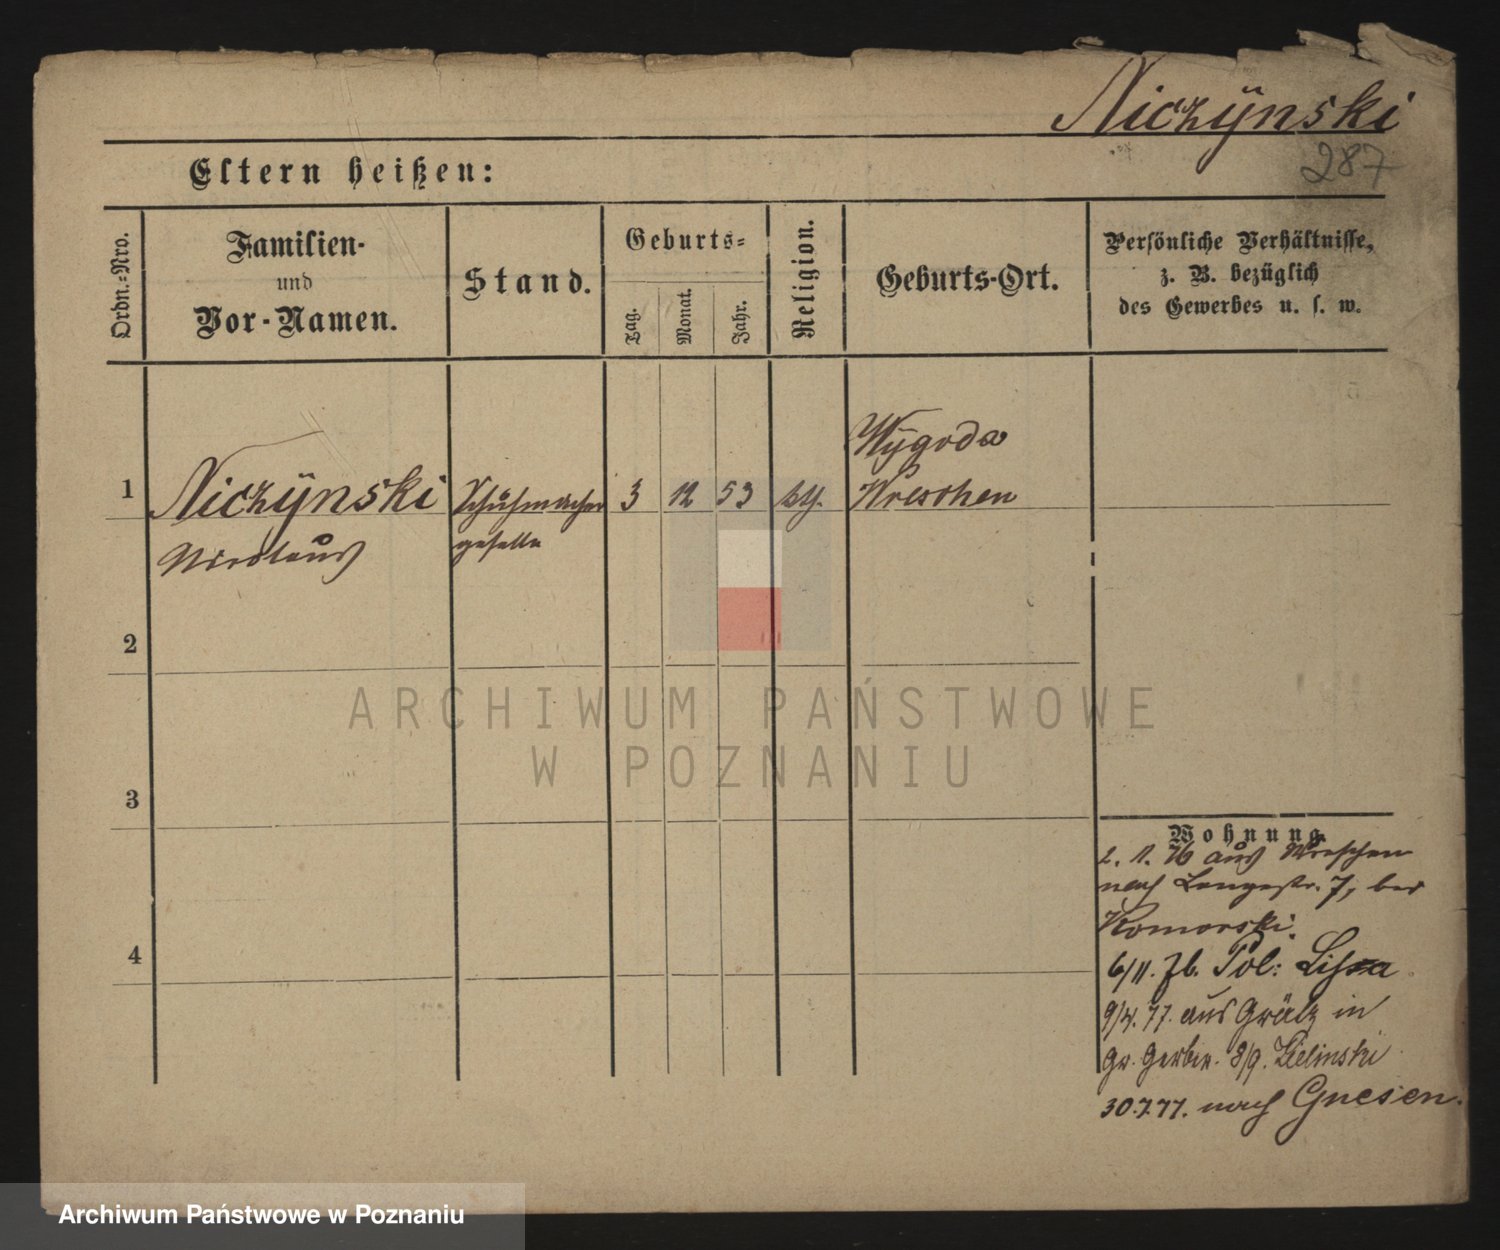 Niczÿnski
287
Eltern heißen:
Ordn.-Nro.
Familien-
und
Vor-Namen.
Stand.
Geburts-
Tag.
Monat.
Jahr.
Religion.
Geburts-Ort.
Persönliche Verhältnisse,
z. B. bezüglich
des Gewerbes u. s. w.
Wygoda
1 Niczÿnski Schuhmacher 3 12 53 kth. Wreschen
Nicolaus geselle
2
ARCHIWUM PAŃSTWOWE
W POZNANIU
3
Wohnung
2. 1. 76 aus Wreschen
nach Langestr. 7, bei
Komorski.
4
6/11. 76. Pol: Lissa
9/4. 77. aus Grätz in
Gr. Gerber. 8/9. Zielinski
30.7.77. nach Gnesen.
Archiwum Państwowe w Poznaniu